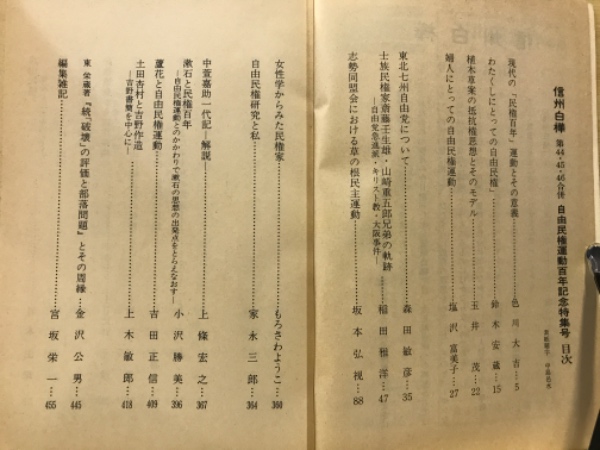 信州白樺 第44・45・46合併 自由民権運動百年記念特集号 目次
現代の「民権百年」運動とその意義……色川大吉…5
わたくしにとっての自由民権……鈴木安蔵…15
植木草案の抵抗権思想とそのモデル……玉井 茂…22
婦人にとっての自由民権運動……塩沢富美子…27
東北七州自由党について……森田敏彦…35
士族民権家斎藤壬生雄・山崎重五郎兄弟の軌跡……稲田雅洋…47
―自由党急進派・キリスト教・大阪事件―
志勢同盟会における草の根民主運動……坂本弘視…88
女性学からみた民権家……もろさわようこ…360
自由民権研究と私……家永三郎…364
中萱嘉助一代記―解説―……上條宏之…367
漱石と民権百年……小沢勝美…396
―自由民権運動とのかかわりで漱石の思想の出発点をとらえなおす―
蘆花と自由民権運動……吉田正信…409
土田杏村と吉野作造……上木敏郎…418
―吉野書簡を中心に―
東 栄蔵著『続「破壊」の評価と部落問題』とその周縁…金沢公男…445
編集雑記……宮坂栄一…455